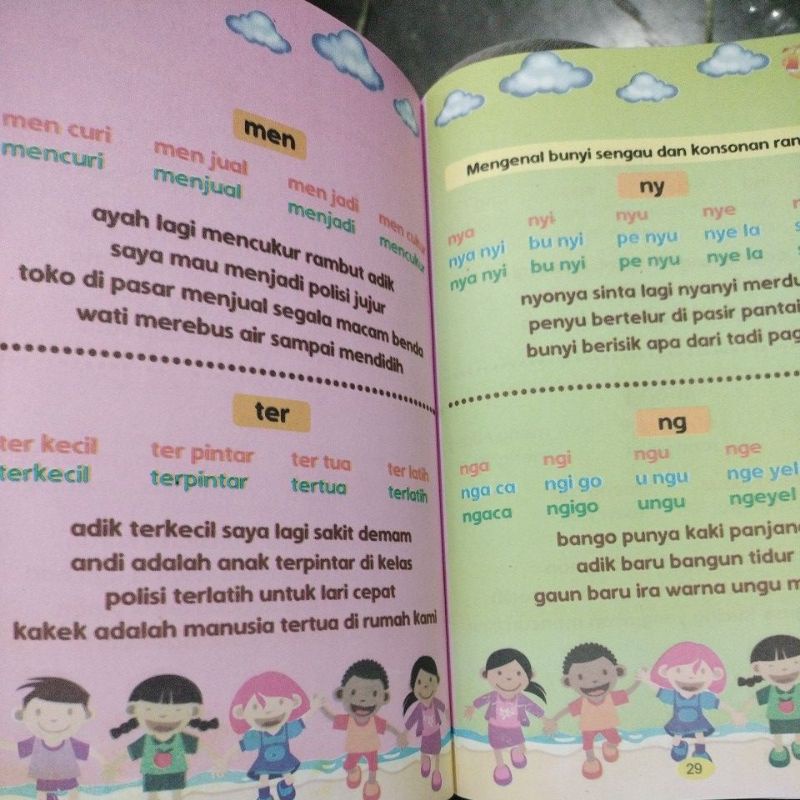 men
men curi men jual men jadi men cukur
mencuri menjual menjadi mencukur
ayah lagi mencukur rambut adik
saya mau menjadi polisi jujur
toko di pasar menjual segala macam benda
wati merebus air sampai mendidih
ter
ter kecil ter pintar ter tua ter latih
terkecil terpintar tertua terlatih
adik terkecil saya lagi sakit demam
andi adalah anak terpintar di kelas
polisi terlatih untuk lari cepat
kakek adalah manusia tertua di rumah kami
Mengenal bunyi sengau dan konsonan
ny
nya nyi nyu nye
nya nyi bu nyi pe nyu nye la
nya nyi bu nyi pe nyu nye la
nyonya sinta lagi nyanyi
penyu bertelur di pasir pantai
bunyi berisik apa dari tadi
ng
nga ngi ngu nge
nga ca ngi go u ngu nge yel
ngaca ngigo ungu ngeyel
bango punya kaki
adik baru bangun tidur
gaun baru ira warna ungu
29